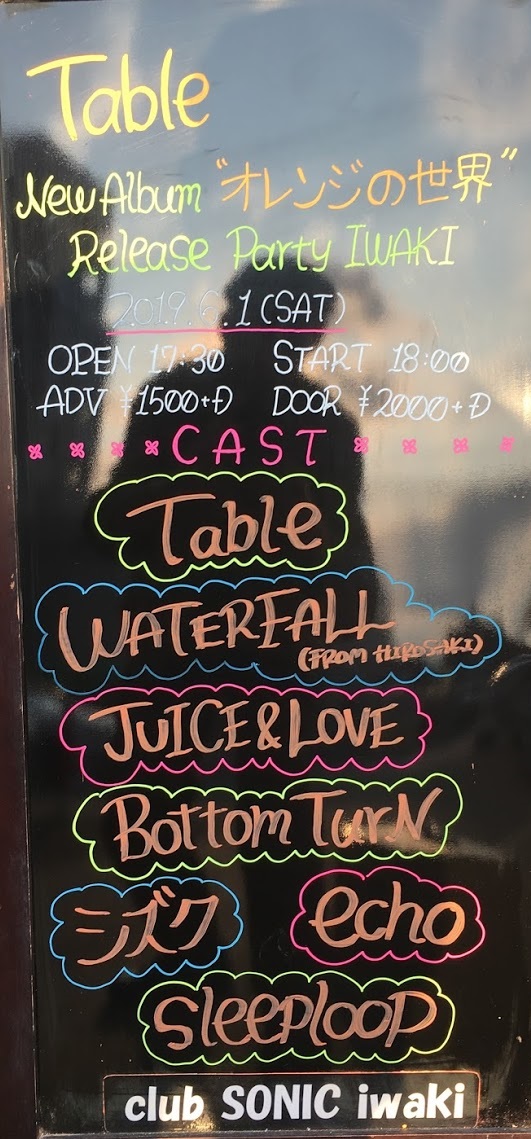 Table
New Album "オレンジの世界"
Release Party IWAKI
2019.6.1(SAT)
OPEN 17:30 START 18:00
ADV ¥1500+D DOOR ¥2000+D
CAST
Table
WATERFALL
(FROM HIROSAKI)
JUICE&LOVE
Bottom TurN
シズク echo
Sleeploop
club SONIC iwaki